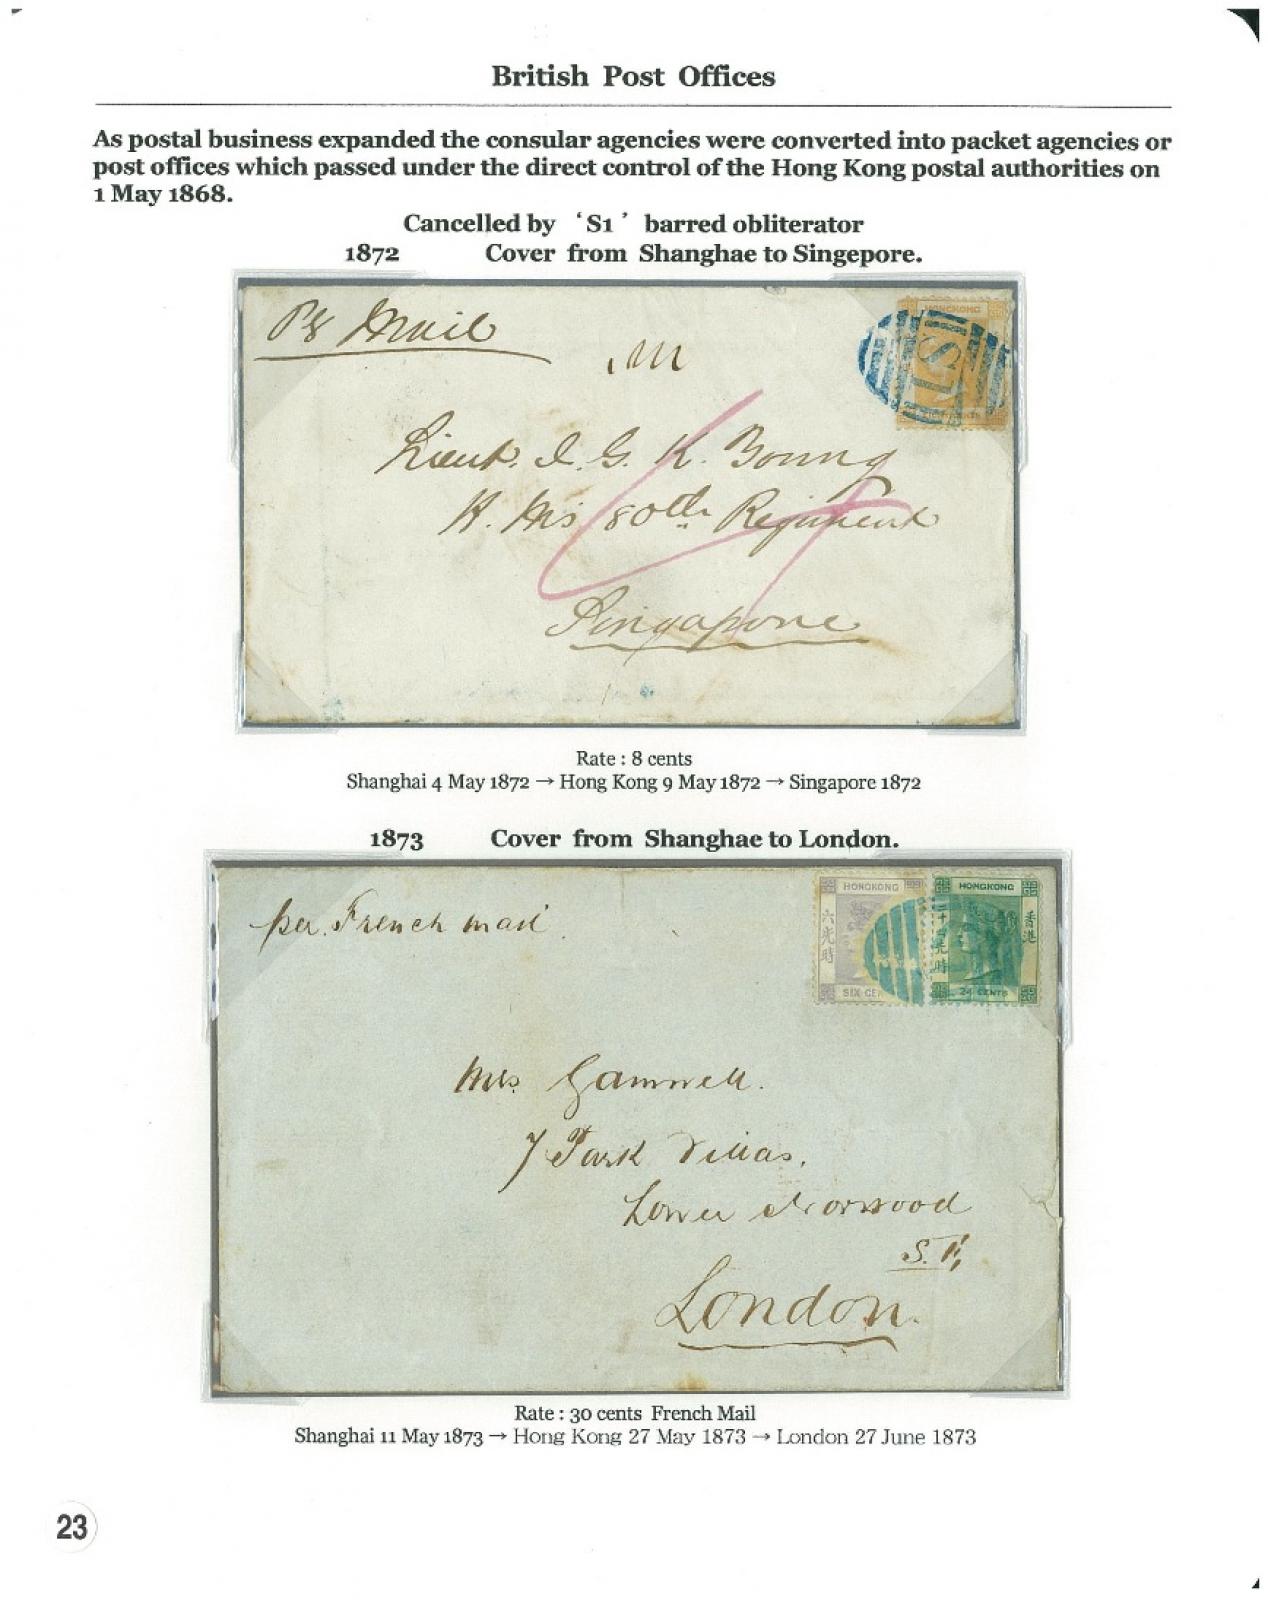 British Post Offices
As postal business expanded the consular agencies were converted into packet agencies or
post offices which passed under the direct control of the Hong Kong postal authorities on
1 May 1868.
Cancelled by 'S1' barred obliterator
1872 Cover from Shanghae to Singepore.
Mail
HONGKONG
S1
Lieut. I. G. K. Boung
H. M's 80th Regiment
Singapore
Rate : 8 cents
Shanghai 4 May 1872 → Hong Kong 9 May 1872 → Singapore 1872
1873 Cover from Shanghae to London.
per French mail
HONGKONG
六先時
SIX CEN
HONGKONG
香港
24 CENTS
Mrs. Gamwell.
7 Park Villas.
Lower Norwood
S. E,
London.
Rate : 30 cents French Mail
Shanghai 11 May 1873 → Hong Kong 27 May 1873 → London 27 June 1873
23